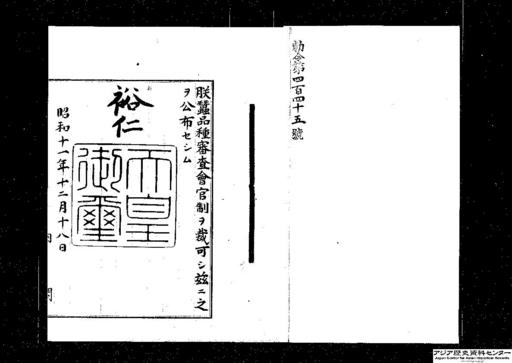 勅令第四百四十五號
朕蠶品種審査會官制ヲ裁可シ茲ニ之
ヲ公布セシム
裕仁
天皇御璽
昭和十一年十二月十八日
アジア歴史資料センター
Japan Center for Asian Historical Records